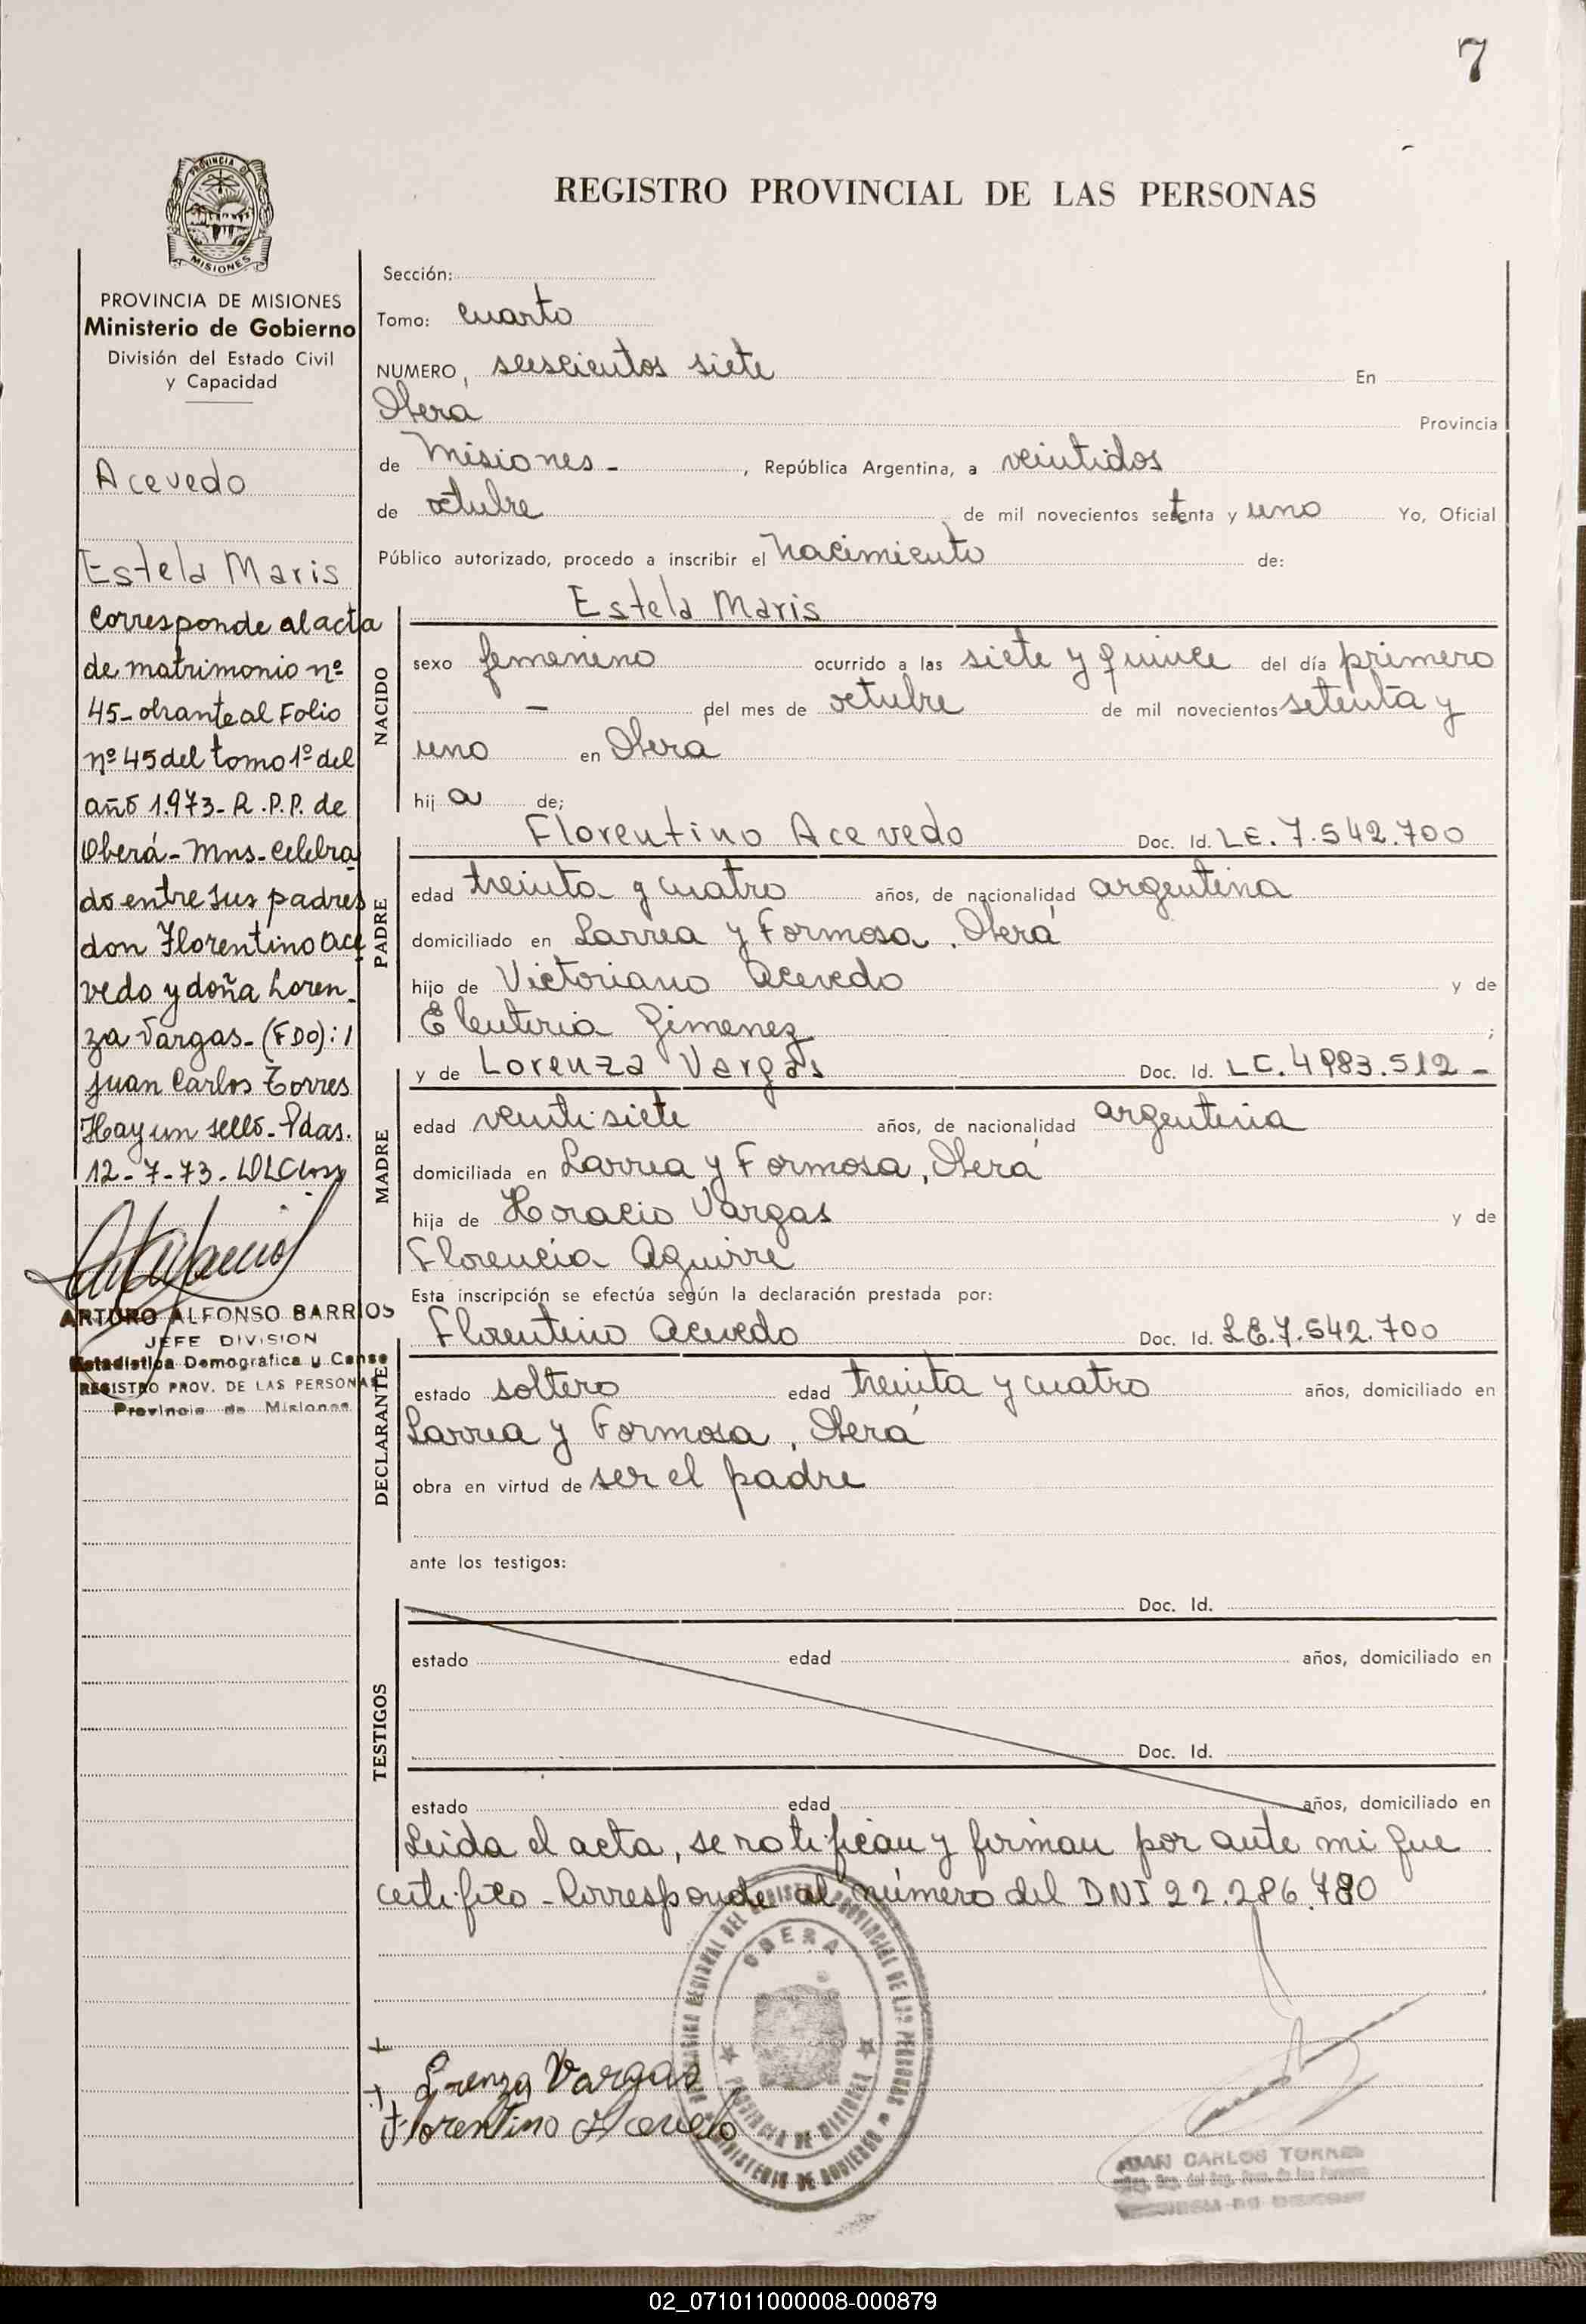 7
PROVINCIA DE
MISIONES
PROVINCIA DE MISIONES
Ministerio de Gobierno
División del Estado Civil
y Capacidad
Acevedo
Estela Maris
Corresponde al acta
de matrimonio nº
45-obrante al Folio
nº 45 del tomo 1º del
año 1.973- R.P.P. de
Oberá-Mns-celebra
do entre sus padres
don Florentino Ace
vedo y doña Loren-
za Vargas-(FDO):/
Juan Carlos Torres
Hay un sello-Pdas.
12-7-73-
ARTURO ALFONSO BARRIOS
JEFE DIVISION
Estadistica Demografica y Censo
REGISTRO PROV. DE LAS PERSONAS
Provincia de Misiones
REGISTRO PROVINCIAL DE LAS PERSONAS
Sección:
Tomo: cuarto
NUMERO, seiscientos siete En
Oberá Provincia
de Misiones-, República Argentina, a veintidos
de octubre de mil novecientos setenta y uno Yo, Oficial
Público autorizado, procedo a inscribir el nacimiento de:
Estela Maris
NACIDO
sexo femenino ocurrido a las siete y quince del día primero
- del mes de octubre de mil novecientos setenta y
uno en Oberá
hija de;
Florentino Acevedo Doc. Id. LE. 7.542.700
PADRE
edad treinta y cuatro años, de nacionalidad argentina
domiciliado en Larrea y Formosa, Oberá
hijo de Victoriano Acevedo y de
Eleuteria Gimenez ;
y de Lorenza Vargas Doc. Id. LC. 4983.512-
MADRE
edad veintisiete años, de nacionalidad argentina
domiciliada en Larrea y Formosa, Oberá
hija de Horacio Vargas y de
Florencia Aguirre
Esta inscripción se efectúa según la declaración prestada por:
Florentino Acevedo Doc. Id. LE.7.542.700
DECLARANTE
estado soltero edad treinta y cuatro años, domiciliado en
Larrea y Formosa, Oberá
obra en virtud de ser el padre
ante los testigos:
Doc. Id.
TESTIGOS
estado edad años, domiciliado en
Doc. Id.
estado edad años, domiciliado en
Leida el acta, se ratifican y firman por ante mi que
certifico-Corresponde al número del DNI 22.286.780
OBERA
PROVINCIA DE MISIONES
MINISTERIO DE GOBIERNO
REGISTRO PROVINCIAL DE LAS PERSONAS
Lorenza Vargas
Florentino Acevedo
JUAN CARLOS TORRES
02_071011000008-000879